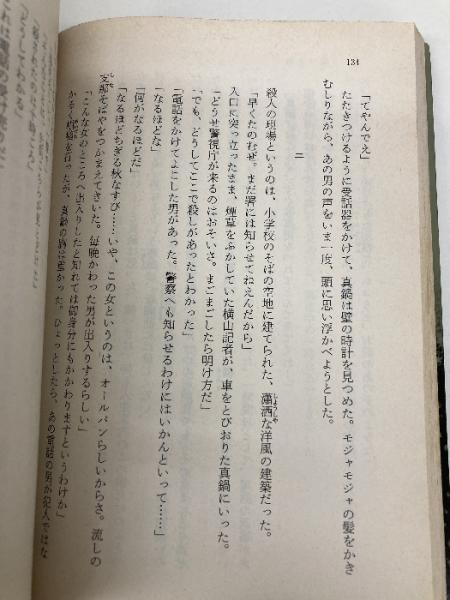 134
「てやんでえ」
たたきつけるように受話器をかけて、真鍋は壁の時計を見つめた。モジャモジャの髪をかき
むしりながら、あの男の声をいま一度、頭に思い浮かべようとした。
二
殺人の現場というのは、小学校のそばの空地に建てられた、瀟洒な洋風の建築だった。
しょうしゃ
「早くたのむぜ。まだ署には知らせてねえんだから」
入口に突っ立ったまま、煙草をふかしていた横山記者が、車をとびおりた真鍋にいった。
「どうせ警視庁が来るのはおそいさ。まごまごしたら明け方だ」
「でも、どうしてここで殺しがあったとわかった」
「電話をかけてよこした男があった。警察へも知らせるわけにはいかんといって……」
「なるほどな」
「何がなるほどだ」
「なるほどちぎる秋なすび……いや、この女というのは、オールパンらしいからさ。流しの
支那そばやをつかまえてきいた。毎晩かわった男が出入りするらしい」
「こんな女のところへ出入りしたと知れては御身分にもかかわりますというわけか」
かるく相槌を打ったが、真鍋の胸は重かった。ひょっとしたら、あの電話の男が犯人ではな